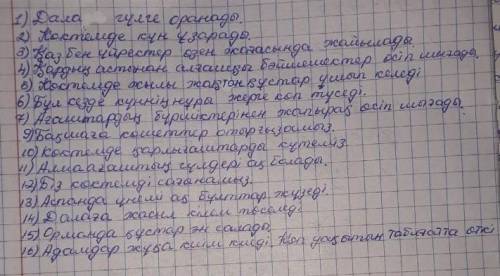 1) Дала гүлге оранады.
2) Көктемде күн ұзарады.
3) Қаз бен үйректер өзен жағасында жайылады.
4) Қардың астынан алғашқы бәйшешектер өсіп шығады.
5) Көктемде жылы жақтан құстар ұшып келеді.
6) Бұл кезде күннің нұры жерге көп түседі.
7) Ағаштардың бүршіктерінен жапырақ өсіп шығады.
9) Бақшаға көшеттер отырғызамыз.
10) Көктемде қарлығаштарды күтеміз.
11) Алма ағаштың гүлдері ақ болады.
12) Біз көктемді сағынамыз.
13) Аспанда үнемі ақ бұлттар жүзеді.
14) Далаға жасыл кілем төселді.
15) Орманда құстар ән салады.
16) Адамдар жұқа киім киеді. Көп уақытын табиғатта өткі